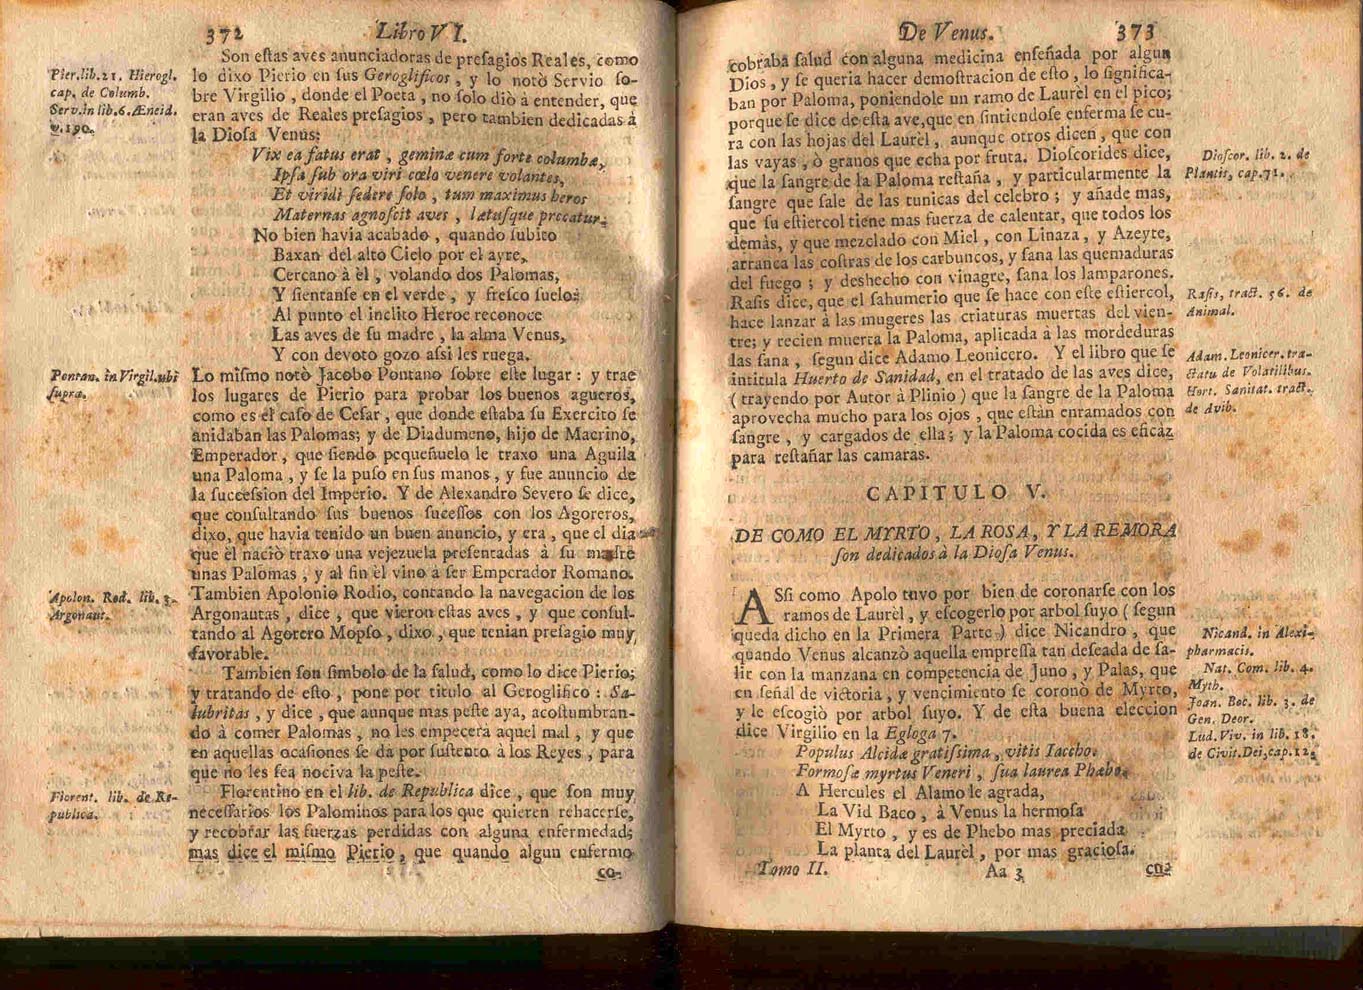 372 Libro VI.
Son eſtas aves anunciadoras de preſagios Reales, como
lo dixo Pierio en ſus Geroglificos, y lo notò Servio ſo-
bre Virgilio, donde el Poeta, no ſolo diò à entender, que
eran aves de Reales preſagios, pero tambien dedicadas à
la Dioſa Venus:
Vix ea fatus erat, geminæ cum forte columbæ,
Ipſa ſub ora viri cœlo venere volantes,
Et viridi ſedere ſolo, tum maximus heros
Maternas agnoſcit aves, lætuſque precatur.
No bien havia acabado, quando ſubito
Baxan del alto Cielo por el ayre,
Cercano à èl, volando dos Palomas,
Y ſientanſe en el verde, y freſco ſuelo:
Al punto el inclito Heroe reconoce
Las aves de ſu madre, la alma Venus,
Y con devoto gozo aſsi les ruega.
Lo miſmo notò Jacobo Pontano ſobre eſte lugar: y trae
los lugares de Pierio para probar los buenos agueros,
como es el caſo de Ceſar, que donde eſtaba ſu Exercito ſe
anidaban las Palomas; y de Diadumeno, hijo de Macrino,
Emperador, que ſiendo pequeñuelo le traxo una Aguila
una Paloma, y ſe la puſo en ſus manos, y fue anuncio de
la ſucceſsion del Imperio. Y de Alexandro Severo ſe dice,
que conſultando ſus buenos ſuceſſos con los Agoreros,
dixo, que havia tenido un buen anuncio, y era, que el dia
que èl naciò traxo una vejezuela preſentadas à ſu madre
unas Palomas, y al fin èl vino à ſer Emperador Romano.
Tambien Apolonio Rodio, contando la navegacion de los
Argonautas, dice, que vieron eſtas aves, y que conſul-
tando al Agorero Mopſo, dixo, que tenian preſagio muy
favorable.
Tambien ſon ſimbolo de la ſalud, como lo dice Pierio;
y tratando de eſto, pone por titulo al Geroglifico: Sa-
lubritas, y dice, que aunque mas peſte aya, acoſtumbran-
do à comer Palomas, no les empecerà aquel mal, y que
en aquellas ocaſiones ſe da por ſuſtento à los Reyes, para
que no les ſea nociva la peſte.
Florentino en el lib. de Republica dice, que ſon muy
neceſſarios los Palominos para los que quieren rehacerſe,
y recobrar las fuerzas perdidas con alguna enfermedad;
mas dice el miſmo Pierio, que quando algun enfermo
co-
Pier.lib.21. Hierogl.
cap. de Columb.
Serv.in lib.6.Æneid.
v.190.
Pontan. in Virgil.ubi
ſupra.
Apolon. Rod. lib. 3.
Argonaut.
Florent. lib. de Re-
publica.
De Venus. 373
cobraba ſalud con alguna medicina enſeñada por algun
Dios, y ſe queria hacer demoſtracion de eſto, lo ſignifica-
ban por Paloma, poniendole un ramo de Laurèl en el pico;
porque ſe dice de eſta ave, que en ſintiendoſe enferma ſe cu-
ra con las hojas del Laurèl, aunque otros dicen, que con
las vayas, ò granos que echa por fruta. Dioſcorides dice,
que la ſangre de la Paloma reſtaña, y particularmente la
ſangre que ſale de las tunicas del celebro; y añade mas,
que ſu eſtiercol tiene mas fuerza de calentar, que todos los
demàs, y que mezclado con Miel, con Linaza, y Azeyte,
arranca las coſtras de los carbuncos, y ſana las quemaduras
del fuego; y deshecho con vinagre, ſana los lamparones.
Raſis dice, que el ſahumerio que ſe hace con eſte eſtiercol,
hace lanzar à las mugeres las criaturas muertas del vien-
tre; y recien muerta la Paloma, aplicada à las mordeduras
las ſana, ſegun dice Adamo Leonicero. Y el libro que ſe
intitula Huerto de Sanidad, en el tratado de las aves dice,
( trayendo por Autor à Plinio ) que la ſangre de la Paloma
aprovecha mucho para los ojos, que eſtàn enramados con
ſangre, y cargados de ella; y la Paloma cocida es eficaz
para reſtañar las camaras.
CAPITULO V.
DE COMO EL MYRTO, LA ROSA, Y LA REMORA
ſon dedicados à la Dioſa Venus.
ASſi como Apolo tuvo por bien de coronarſe con los
ramos de Laurèl, y eſcogerlo por arbol ſuyo ( ſegun
queda dicho en la Primera Parte ) dice Nicandro, que
quando Venus alcanzò aquella empreſſa tan deſeada de ſa-
lir con la manzana en competencia de Juno, y Palas, que
en ſeñal de victoria, y vencimiento ſe coronò de Myrto,
y le eſcogiò por arbol ſuyo. Y de eſta buena eleccion
dice Virgilio en la Egloga 7.
Populus Alcidæ gratiſsima, vitis Iaccho.
Formoſæ myrtus Veneri, ſua laurea Phæbo.
A Hercules el Alamo le agrada,
La Vid Baco, à Venus la hermoſa
El Myrto, y es de Phebo mas preciada
La planta del Laurèl, por mas gracioſa.
Tomo II. Aa 3 en
Dioſcor. lib. 2. de
Plantis, cap.71.
Raſis, tract. 56. de
Animal.
Adam. Leonicer. tra-
ctatu de Volatilibus.
Hort. Sanitat. tract.
de Avib.
Nicand. in Alexi-
pharmacis.
Nat. Com. lib. 4.
Myth.
Joan. Boc. lib. 3. de
Gen. Deor.
Lud. Viv. in lib. 18.
de Civit.Dei,cap.12.